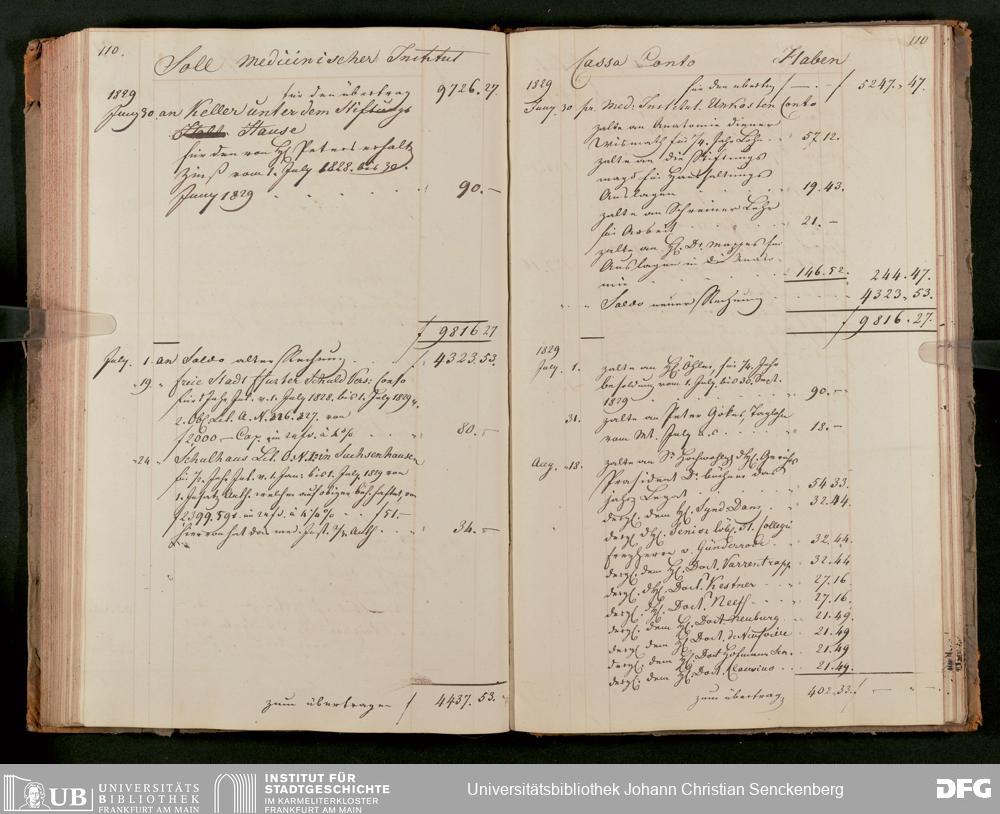 110.
Soll Medicinischer Institut
1829 für den übertrag 9726.27.
Juny 30. an Keller unter dem Stiftungs
Hause
für den von H. Peters erhalt.
Zinß vom 1. July 1828. bis 30.
Juny 1829 90.—
f 9816.27
July. 1. an Saldo alter Rechnung f 4323.53.
19. " freie Stadt Frfurter Schuld Vers: Conto
für 1 Jahr Int. v. 1. July 1828. bis 1. July 1829 v.
2. Obl. Lit. A. N. 326. 327. von
f 2000.— Cap. 80.—
"24 " Schulhaus Lit. O. N. in Sachsenhausen
für ½ Jahr Int. v. 1. Jan: bis 1. July. 1829 von
f 2399. 59x. f 51.—
hiervon hat das med. Inst. ⅔ Anth. 34.—
zum übertragen f 4437.53.
110
Cassa Conto Haben
1829 für den übertrag f 5247.47.
Juny 30 pr. Med: Institut. Unkosten Conto
zalte an Anatomie diener
Wismath für ¼ Jahr Lohn 57.12.
zalte an die Stiftungs
magd für Haushaltungs
Auslagen 19.43.
zalte an Schreiner Lehr
für Arbeit 21.—
zalte an H. Dr. Mappes für
Auslagen in die Anato-
mie 146.52. 244.47.
" " Saldo neuer Rechnung 4323.53.
f 9816.27.
1829
July. 1. zalte an H. Öhler, für ¼ Jahr
besoldung vom 1. July. bis 30. Sept.
1829 90.—
31. zalte an Peter Gökel, Taglohn
vom Mt. July a.c. 18.—
Aug. 18. zalte an
Präsident Dr. büchner das
jahrs Legat 54.33.
dergl. dem H. Synd. Danz 32.44.
dergl. d. H. Senior löbl. 51. Collegii
freyherrn v. Günderrode 32.44.
dergl. dem H. Doct. Varrentrapp 32.44
dergl. d. H. Doct. Kestner 27.16
dergl. d. H. Doct. Neeff 27.16.
dergl. dem H. Doct. Neuburg 21.49.
dergl. dem H. Doct. de Neufville 21.49
dergl. dem H. Doct. Hofmann Sen. 21.49
dergl. dem H. Doct. 21.49.
zum übertrag 402.33.
UB UNIVERSITÄTS
BIBLIOTHEK
FRANKFURT AM MAIN
INSTITUT FÜR
STADTGESCHICHTE
IM KARMELITERKLOSTER
FRANKFURT AM MAIN
Universitätsbibliothek Johann Christian Senckenberg
DFG